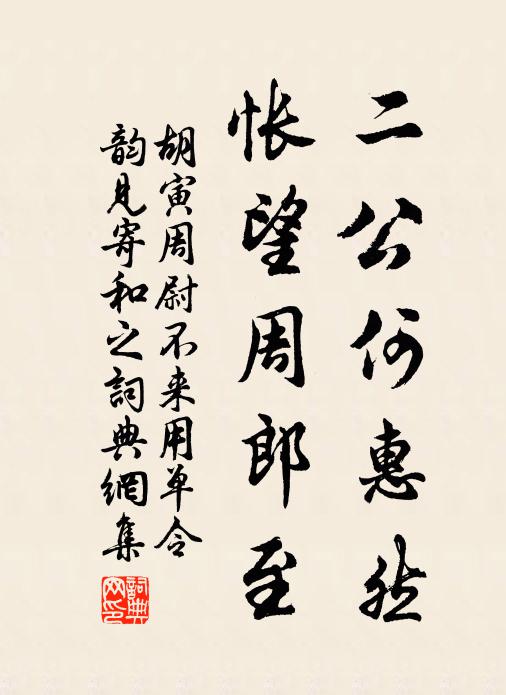 二公何惠然
悵望周郎至
胡寅周尉不来用单令
韵見寄和之詞典網集
詞典网印